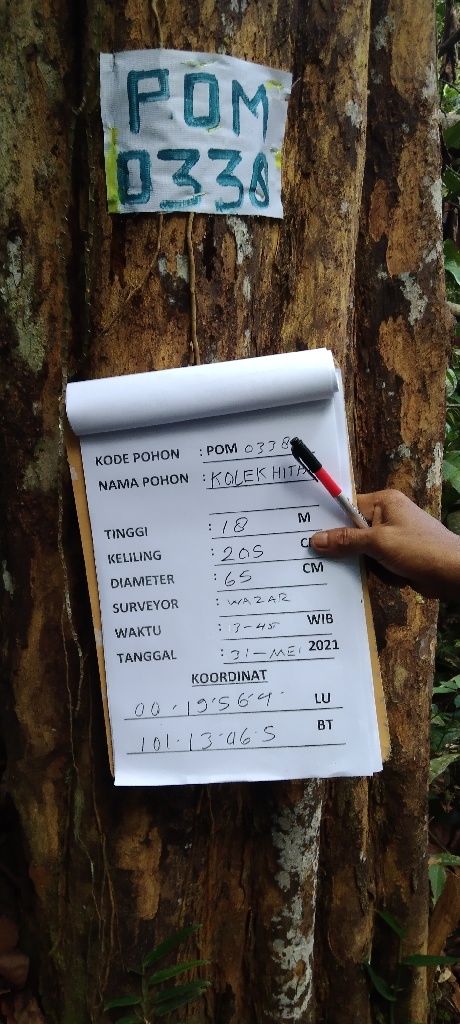 POM
0338
KODE POHON : POM 0338
NAMA POHON : KOLEK HITA
TINGGI : 18 M
KELILING : 205 C
DIAMETER : 65 CM
SURVEYOR : WAZAR
WAKTU : 13-45 WIB
TANGGAL : 31-MEI 2021
KOORDINAT
00.19'56.4" LU
101.13.06.5 BT